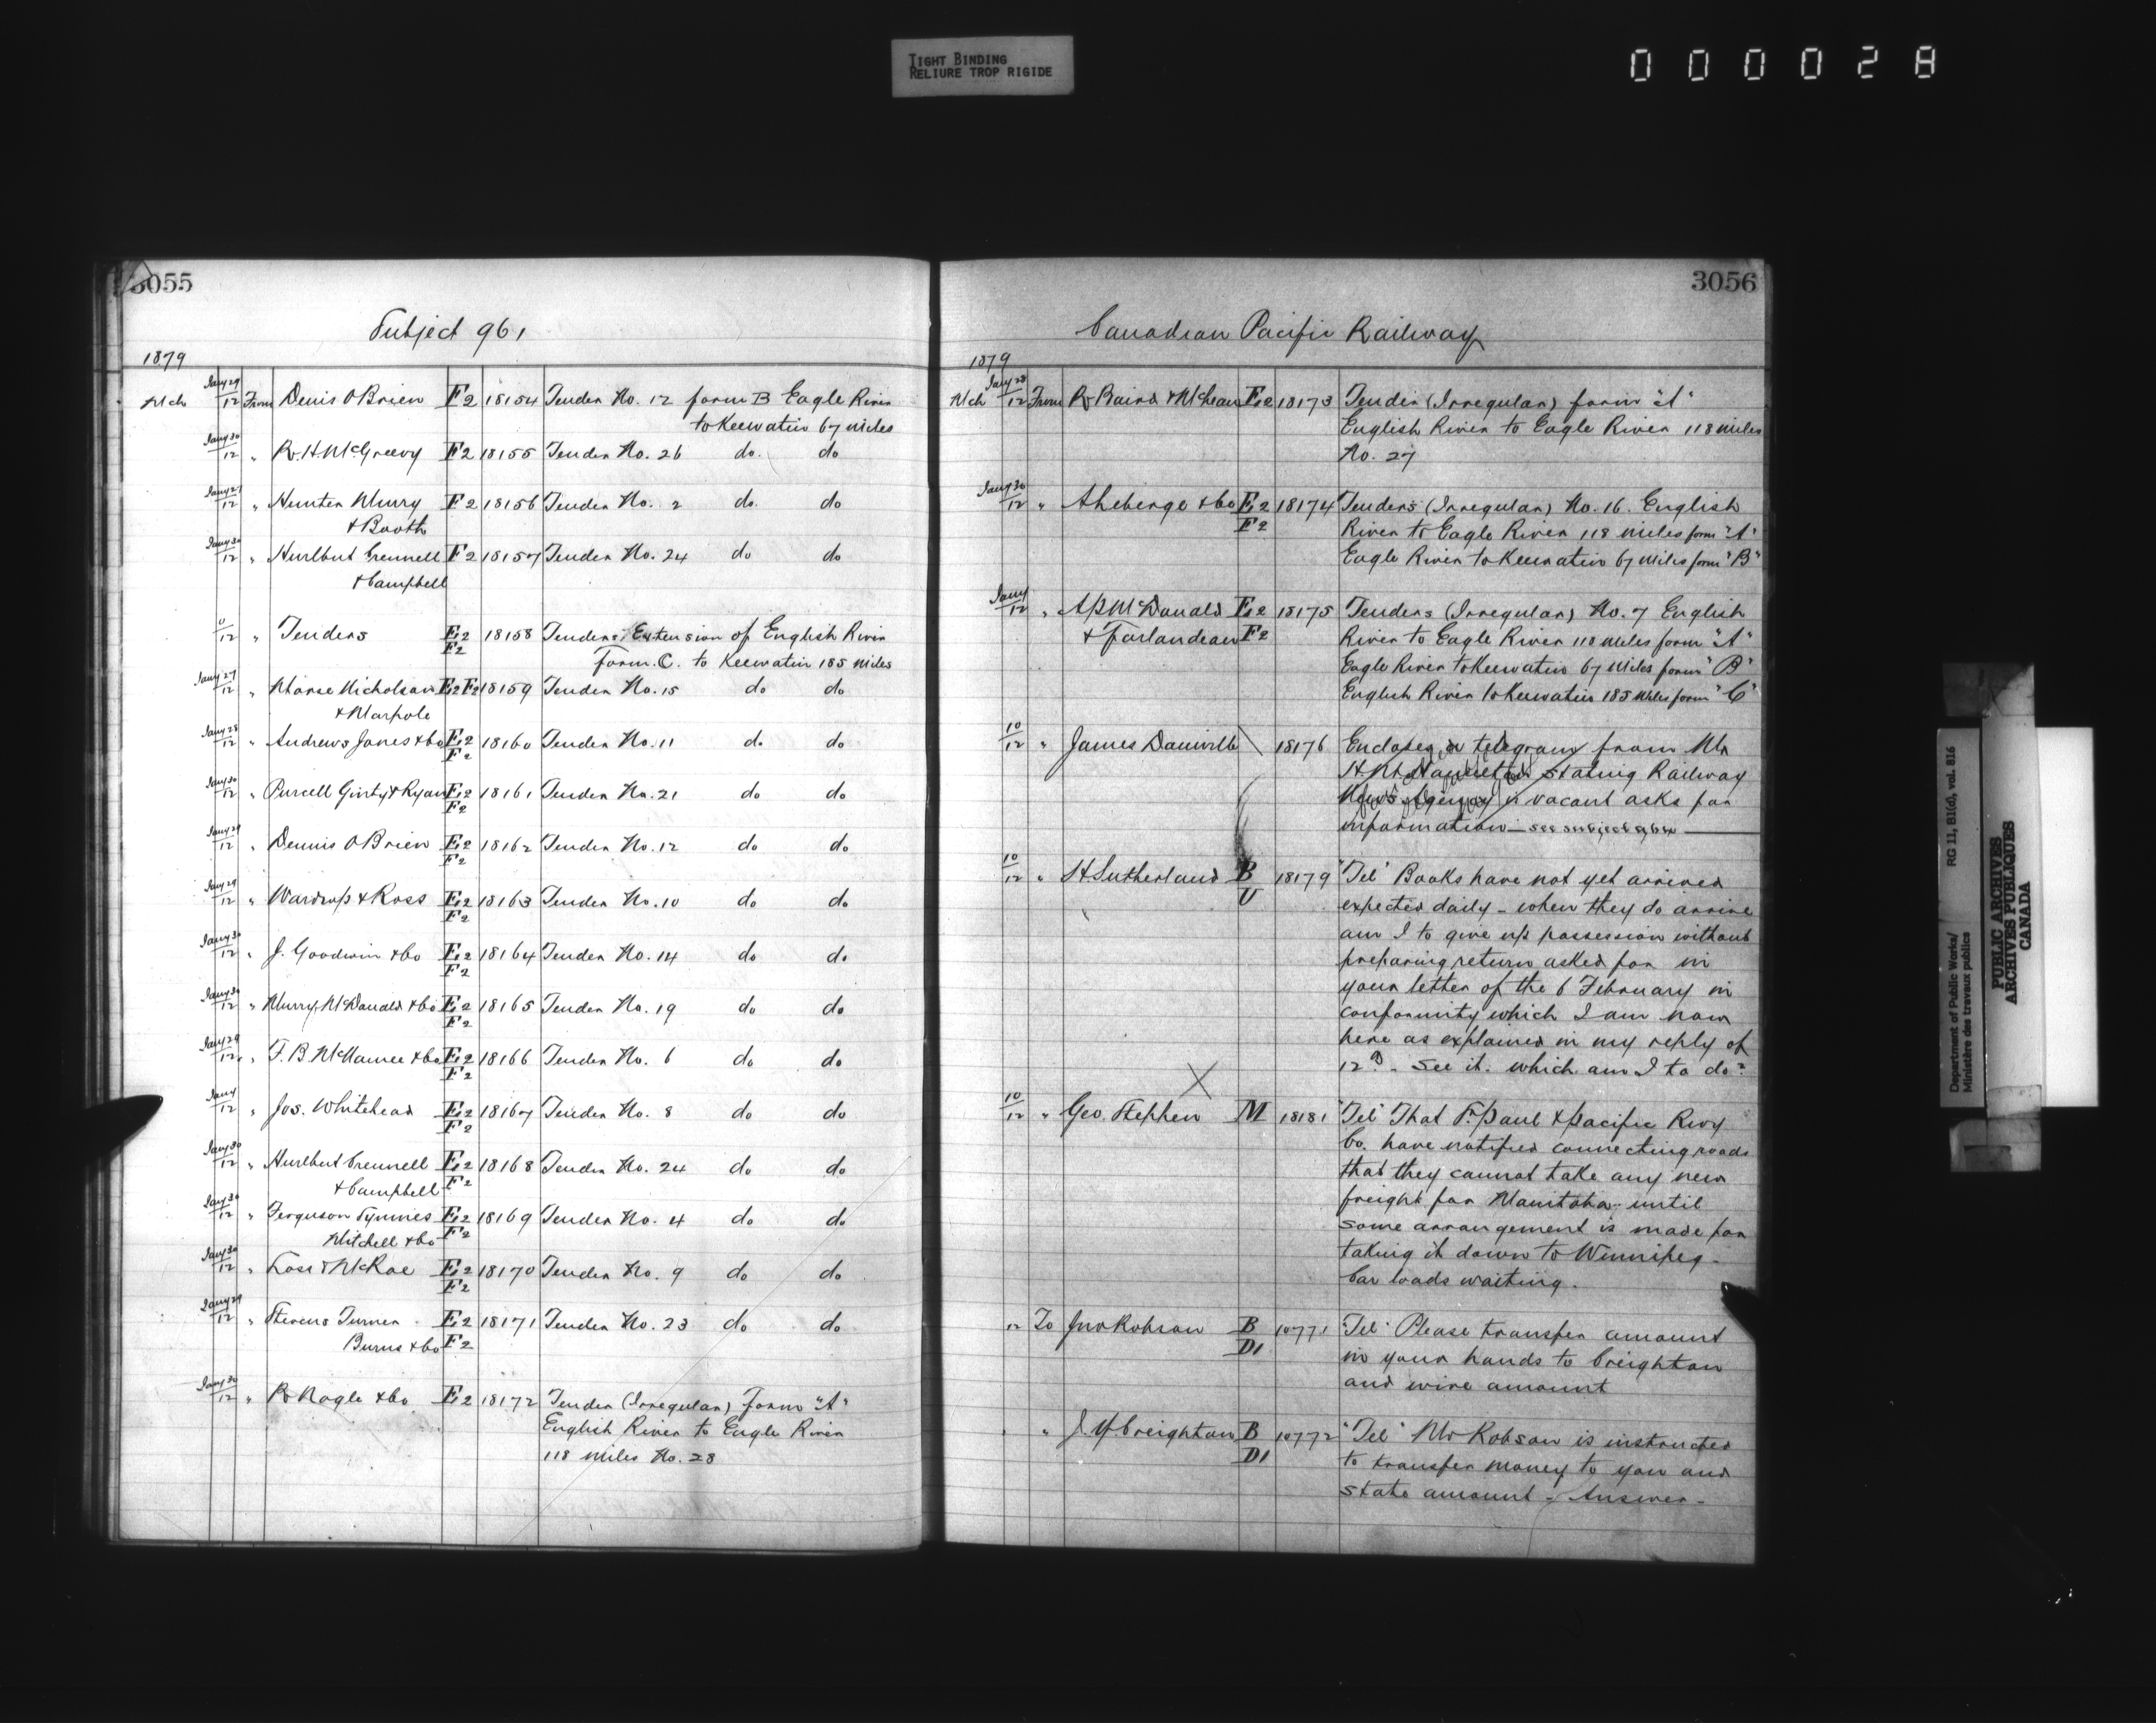 TIGHT BINDING
RELIURE TROP RIGIDE
000028
3055
Subject 961
1879
Mch Jany 29/12 From Denis O'Brien F2 18154 Tender No. 12 form B Eagle River
to Keewatin 67 miles
Jany 30/12 " R.H. McGreevy F2 18155 Tender No. 26 do. do
Jany 27/12 " Hunter Murry F2 18156 Tender No. 2 do. do
& Booth
Jany 30/12 " Hurlbut Crennell F2 18157 Tender No. 24 do do
& Campbell
11/12 " Tenders E2 18158 Tenders, Extension of English River
F2 Form. C. to Keewatin 185 miles
Jany 27/12 " Morse Nicholson E2 F2 18159 Tender No. 15 do do
& Marpole
Jany 28/12 " Andrews Jones & Co E2 18160 Tender No. 11 do do
F2
Jany 30/12 " Purcell Ginty & Ryan E2 18161 Tender No. 21 do do
F2
Jany 29/12 " Dennis O'Brien E2 18162 Tender No. 12 do do
F2
Jany 29/12 " Wardrop & Ross E2 18163 Tender No. 10 do do
F2
Jany 30/12 " J. Goodwin & Co E2 18164 Tender No. 14 do do
F2
Jany 30/12 " Murry, McDonald & Co E2 18165 Tender No. 19 do do
F2
Jany 29/12 " F.B. McNamee & Co E2 18166 Tender No. 6 do do
F2
Jany/12 " Jos. Whitehead E2 18167 Tender No. 8 do do
F2
Jany 30/12 " Hurlbut Crennell E2 18168 Tender No. 24 do do
& Campbell F2
Jany 30/12 " Ferguson Symmes E2 18169 Tender No. 4 do do
Mitchell & Co F2
Jany 30/12 " & McRae E2 18170 Tender No. 9 do do
F2
Jany 29/12 " Stevens Turner E2 18171 Tender No. 23 do do
Burns & Co F2
Jany 30/12 " R Nagle & Co E2 18172 Tender (Irregular) Form "A"
English River to Eagle River
118 miles No. 28
3056
Canadian Pacific Railway
1879
Mch Jany 28/12 From R Baird & McLean E2 18173 Tender (Irregular) form "A"
English River to Eagle River 118 miles
No. 27
Jany 30/12 " A Leberge & Co E2 18174 Tenders (Irregular) No. 16. English
F2 River to Eagle River 118 miles form "A"
Eagle River to Keewatin 67 miles form "B"
Jany/12 " A P McDonald E2 18175 Tenders (Irregular) No. 7 English
& Farlandeau F2 River to Eagle River 118 miles form "A"
Eagle River to Keewatin 67 miles form "B"
English River to Keewatin 185 miles form "C"
10/12 " James Danville 18176 Encloses a telegram from Mr
stating Railway
News Agency is vacant asks for
information — see subject
10/12 " H Sutherland B 18179 "Tel" Books have not yet arrived
U expected daily - when they do arrive
am I to give up possession without
preparing return asked for in
your letter of the 6 February in
conformity which I am now
here as explained in my reply of
12th. See it. which am I to do?
10/12 " Geo. Stephen M 18181 "Tel" That St. Paul & Pacific Rwy
Co. have notified connecting roads
that they cannot take any new
freight for Manitoba until
some arrangement is made for
taking it down to Winnipeg -
Car loads waiting.
12 To Jno Robson B 10771 "Tel" Please transfer amount
D1 in your hands to Creighton
and wire amount
" J.Y. Creighton B 10772 "Tel" Mr Robson is instructed
D1 to transfer money to you and
state amount - Answer -
Department of Public Works/ RG 11, B1(d), vol. 816
Ministère des travaux publics
PUBLIC ARCHIVES
ARCHIVES PUBLIQUES
CANADA